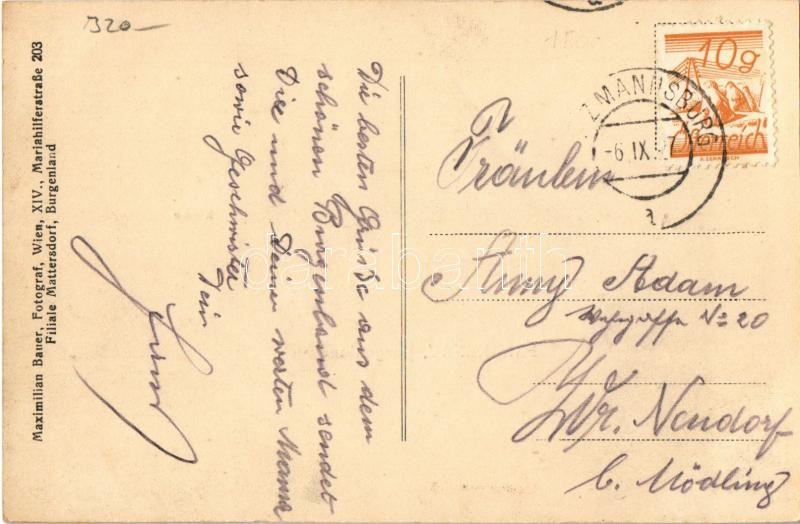 J20-
Maximilian Bauer, Fotograf, Wien, XIV., Mariahilferstraße 203
Filiale Mattersdorf, Burgenland
Die besten Grüße aus dem
schönen Burgenland sendet
Dir und Deiner werten Mama
sowie Geschwister
Dein
10g
Österreich
ZMANNSBURG
-6.IX.
Fräulein
Anny Adam
No 20
Wr. Neudorf
b. Mödling
darabanth.com